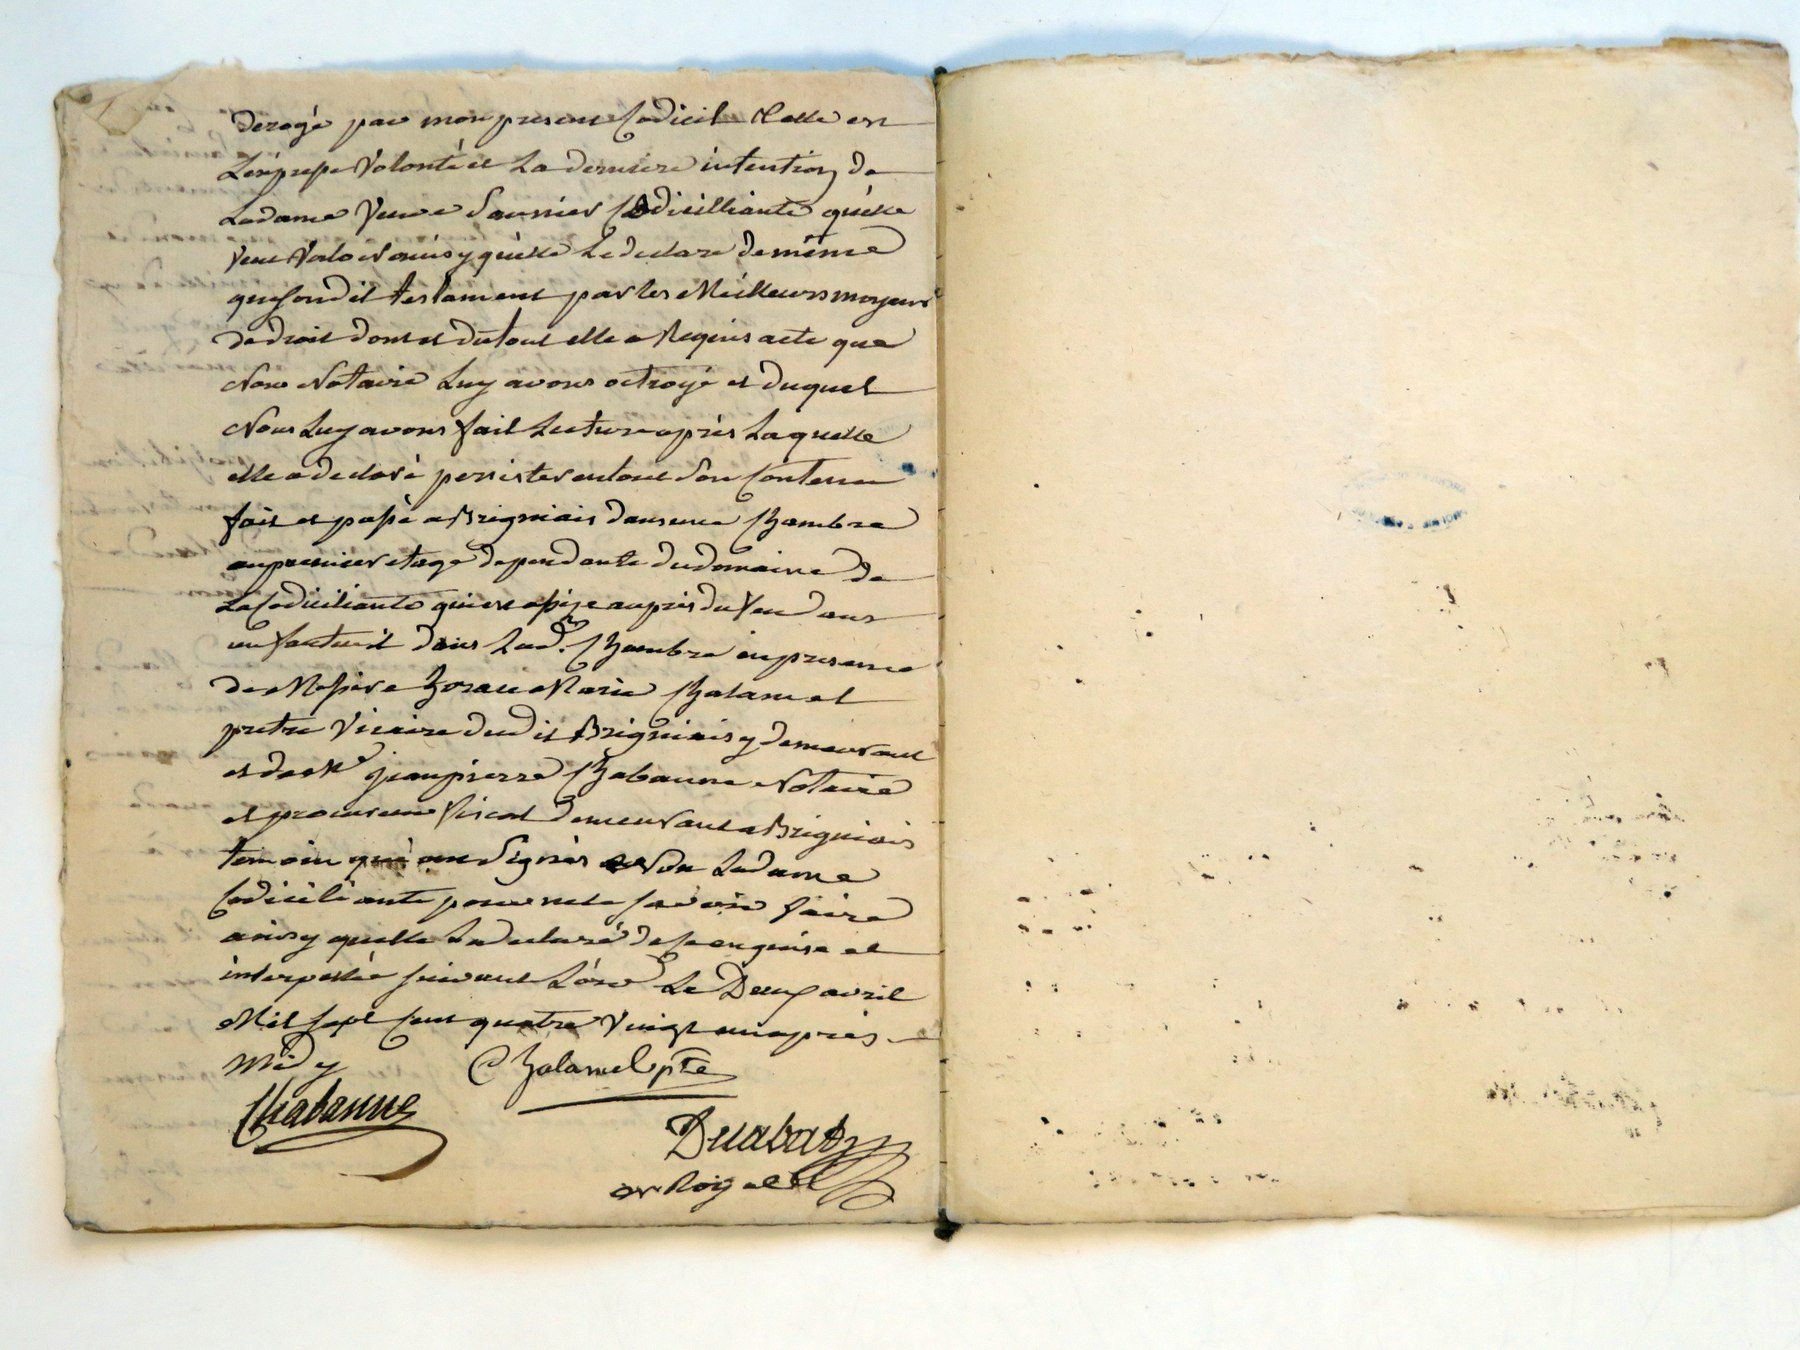 derogé par mon present Codicil Telle est
L'expresse Volonté et La derniere intention de
Ladame Veuve Saunier Codicilliante qu'elle
veut Valoir ainsy qu'elle Le declare de même
que sondit testament par les Meilleurs moyens
de droit dont et du tout elle a Requis acte que
Nous Notaire Luy avons octroyé et duquel
Nous Luy avons fait Lecture après Laquelle
elle a declaré persister en tout Son Contenu
fait et passé a Brigniais dans une Chambre
au premier etage dependante du domaine de
La Codiciliante qui est assize auprès du feu dans
un fauteuil dans Lad. Chambre en presence
de Messire Horace Marie Chalamel
pretre Vicaire dudit Brigniais y demeurant
et de Me Jean pierre Chabanne Notaire
et procureur fiscal demeurant a Brigniais
temoin qui ont Signés Non Ladame
Codiciliante pour ne le scavoir faire
ainsy qu'elle La declaré de ce enquise et
interpellée suivant L'ord Le Deux avril
Mil sept Cent quatre Vingt un après
Midy Chalamel ptre
Chabanne
Ducabat
Nore Royal